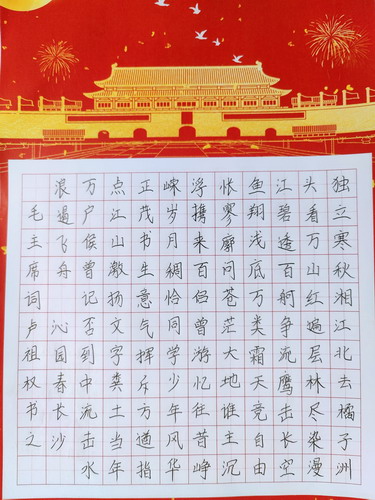 独立寒秋湘江北去橘子洲
头看万山红遍层林尽染漫
江碧透百舸争流鹰击长空
鱼翔浅底万类霜天竞自由
怅寥廓问苍茫大地谁主沉
浮携来百侣曾游忆往昔峥
嵘岁月绸恰同学少年风华
正茂书生意气挥斥方遒指
点江山激扬文字粪土当年
万户侯曾记否到中流击水
浪遏飞舟 沁园春长沙
毛主席词卢祖权书之